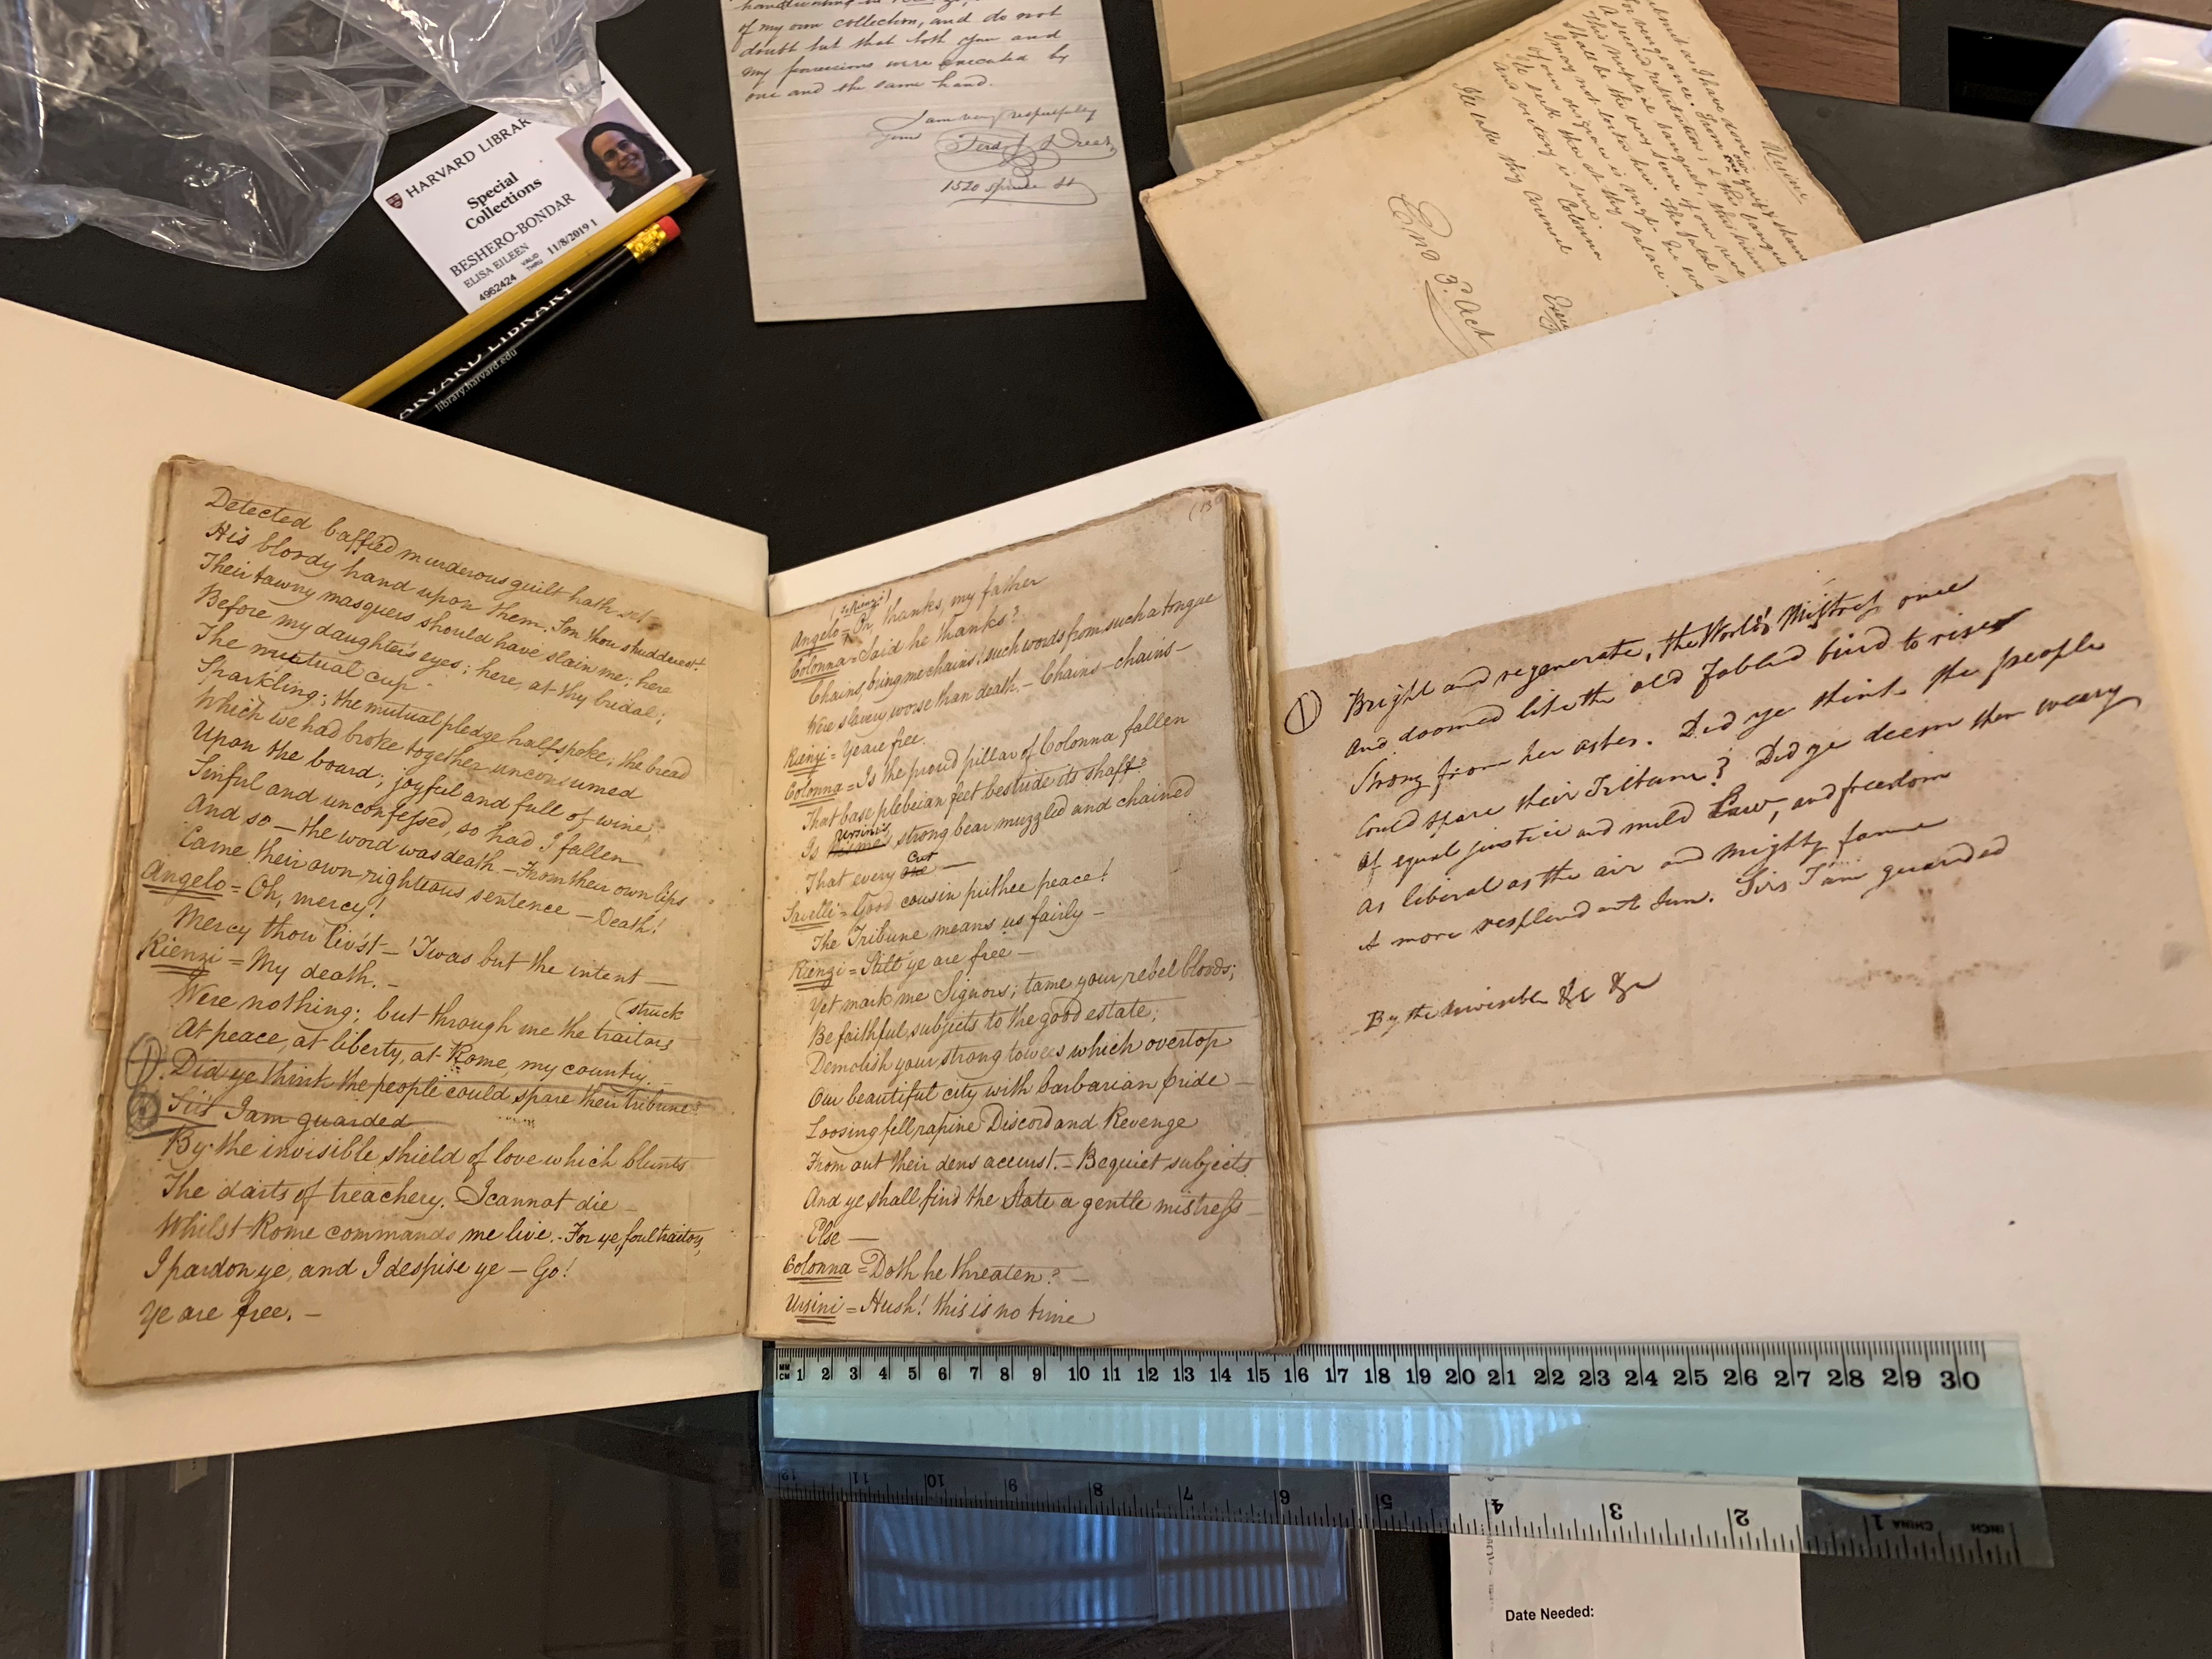 HARVARD LIBRAR
Special
Collections
BESHERO-BONDAR
ELISA EILEEN
4962424 VALID THRU 11/8/2019 1
LIBRARY
library.harvard.edu
of my own collection, and do not
doubt but that both you and
my possessions were executed by
one and the same hand.
I am very respectfully
yours
Ferd J Dreer
1520 Spruce St
Ursini
A second retribution;
Shall be the very scene of our
I may not enter here.
We seek thee at thy palace.
And victory is sure. Colonna
We take thy counsel
End 3. Act
Detected baffled murderous guilt hath set
His bloody hand upon them. Son thou shudderest!
Their tawny masquers should have slain me; here
Before my daughter's eyes; here, at thy bridal;
The mutual cup
Sparkling; the mutual pledge halfspoke; the bread
Which we had broke together unconsumed
Upon the board; joyful and full of wine,
Sinful and unconfessed, so had I fallen
And so – the word was death. – From their own lips
Came their own righteous sentence – Death!
Angelo = Oh, mercy!
Mercy thou liv'st – 'Twas but the intent –
Rienzi = My death. –
Were nothing; but through me the traitors (struck
At peace, at liberty, at Rome, my country. –
(1). Did ye think the people could spare their tribune?
Sirs I am guarded
By the invisible shield of love which blunts
The darts of treachery. I cannot die –
Whilst Rome commands me live. – For ye, foul traitors,
I pardon ye, and I despise ye – Go!
Ye are free. –
(13
(to Rienzi)
Angelo = Oh, thanks, my father
Colonna = Said he thanks?
Chains, bring me chains; such words from such a tongue
Were slavery worse than death. – Chains – chains –
Rienzi = Ye are free.
Colonna = Is the proud pillar of Colonna fallen
That base plebeian feet bestride its shaft?
Ursini's
Is strong bear muzzled and chained
Cur
That every –
Savelli = Good cousin prithee peace!
The Tribune means us fairly –
Rienzi = Still ye are free –
Yet mark me Signors; tame your rebel bloods;
Be faithful subjects to the good estate;
Demolish your strong towers which overtop
Our beautiful city with barbarian pride –
Loosing fell rapine Discord and Revenge
From out their dens accurst. – Be quiet subjects
And ye shall find the State a gentle mistress –
Else –
Colonna = Doth he threaten? –
Ursini = Hush! this is no time
(1) Bright and regenerate, the World's Mistress once
And doomed like the old Fabled bird to rise
Strong from her ashes. Did ye think the people
Could spare their Tribune? Did ye deem them weary
Of equal justice and mild Law, and freedom
As liberal as the air and mighty fame
A more resplendent Sun. Sirs I am guarded
By the invisible &c &c
MM
CM 1 2 3 4 5 6 7 8 9 10 11 12 13 14 15 16 17 18 19 20 21 22 23 24 25 26 27 28 29 30
12 11 10 9 8 7 6 5 4 3 2 1 CHINA INCH
Date Needed: